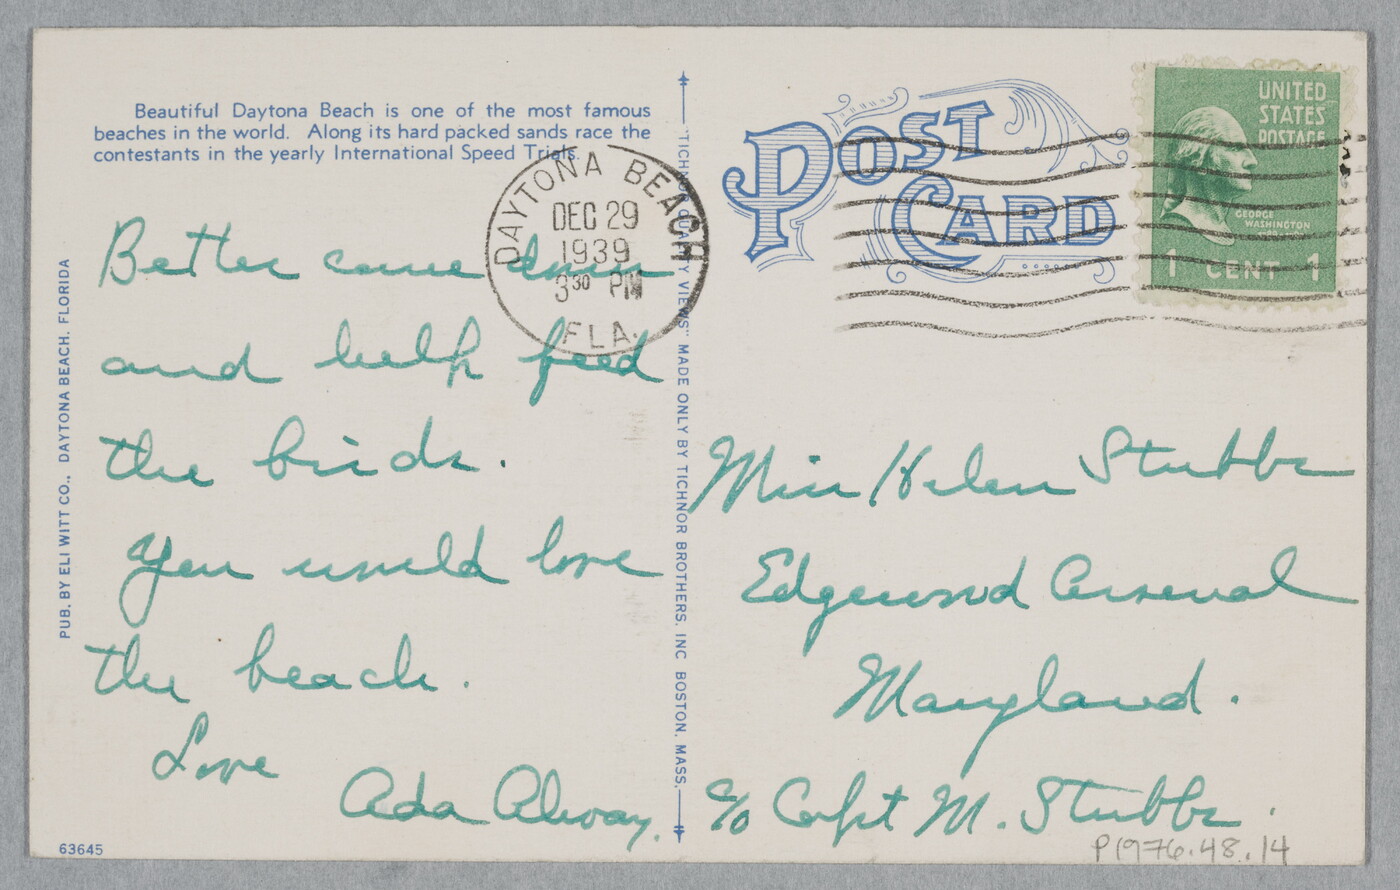 Beautiful Daytona Beach is one of the most famous
beaches in the world. Along its hard packed sands race the
contestants in the yearly International Speed Trials.
DAYTONA BEACH
DEC 29
1939
3 30 PM
FLA.
Better come down
and help feed
the birds.
You would love
the beach.
Love
Ada Alway.
63645
PUB. BY ELI WITT CO., DAYTONA BEACH, FLORIDA
"TICHNOR QUALITY VIEWS" MADE ONLY BY TICHNOR BROTHERS, INC BOSTON, MASS.
POST
CARD
UNITED
STATES
POSTAGE
GEORGE
WASHINGTON
1 CENT 1
Miss Helen Stubbs
Edgewood Arsenal
Maryland.
c/o Capt M. Stubbs.
P1976.48.14